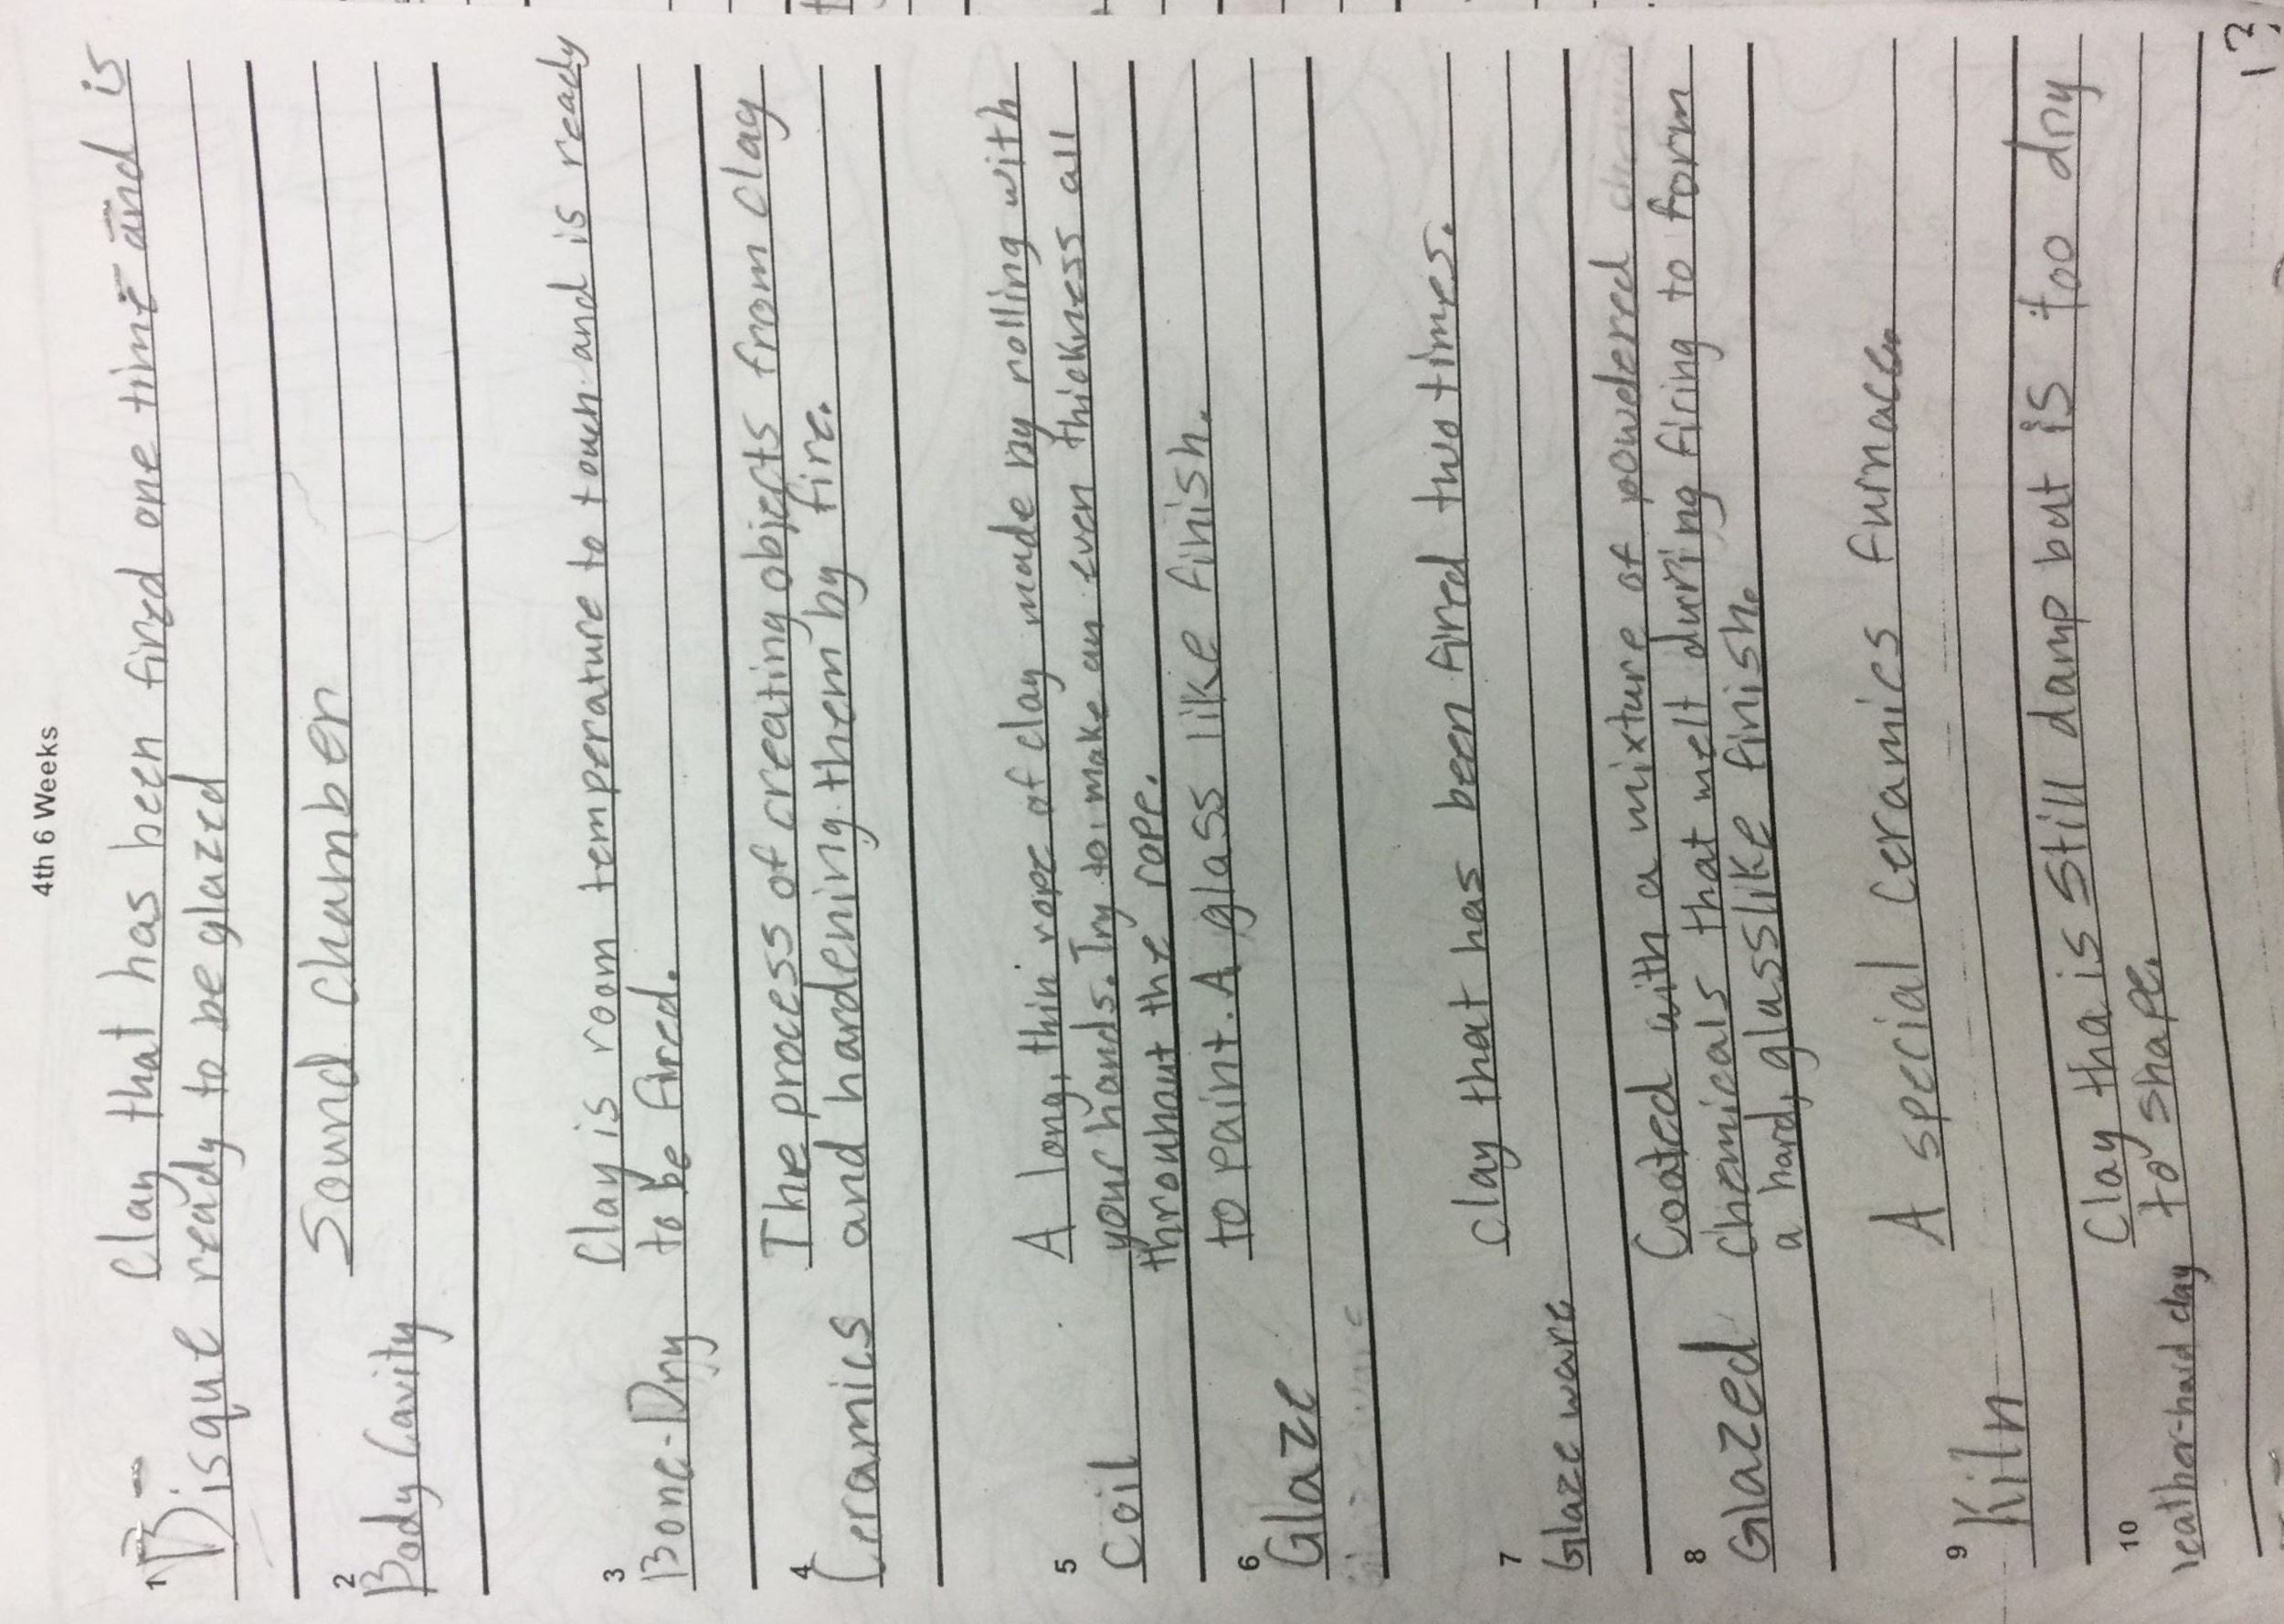 4th 6 Weeks
1 Clay that has been fired one time and is
Bisque ready to be glazed
2 Sound chamber
Body Cavity
3 Clay is room temperature to touch and is ready
Bone-Dry to be fired.
4 The process of creating objects from clay
Ceramics and hardening them by fire.
5 A long, thin rope of clay made by rolling with
your hands. Try to make an even thickness all
Coil throuhout the rope.
6 to paint. A glass like finish.
Glaze
7 clay that has been fired two times.
Glaze ware
8 Coated with a mixture of powdered
Glazed chemicals that melt durring firing to form
a hard, glasslike finish.
9 A special ceramics furnace.
Kiln
10 Clay tha is still damp but is too dry
leather-hard clay to shape.